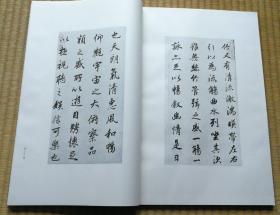 竹又有清流激湍暎帶左右
引以為流觴曲水列坐其次
雖無絲竹管弦之盛一觴一
詠亦足以暢敘幽情是日
也天朗氣清惠風和暢
仰觀宇宙之大俯察品
類之盛所以遊目騁懷足
以極視聽之娛信可樂也